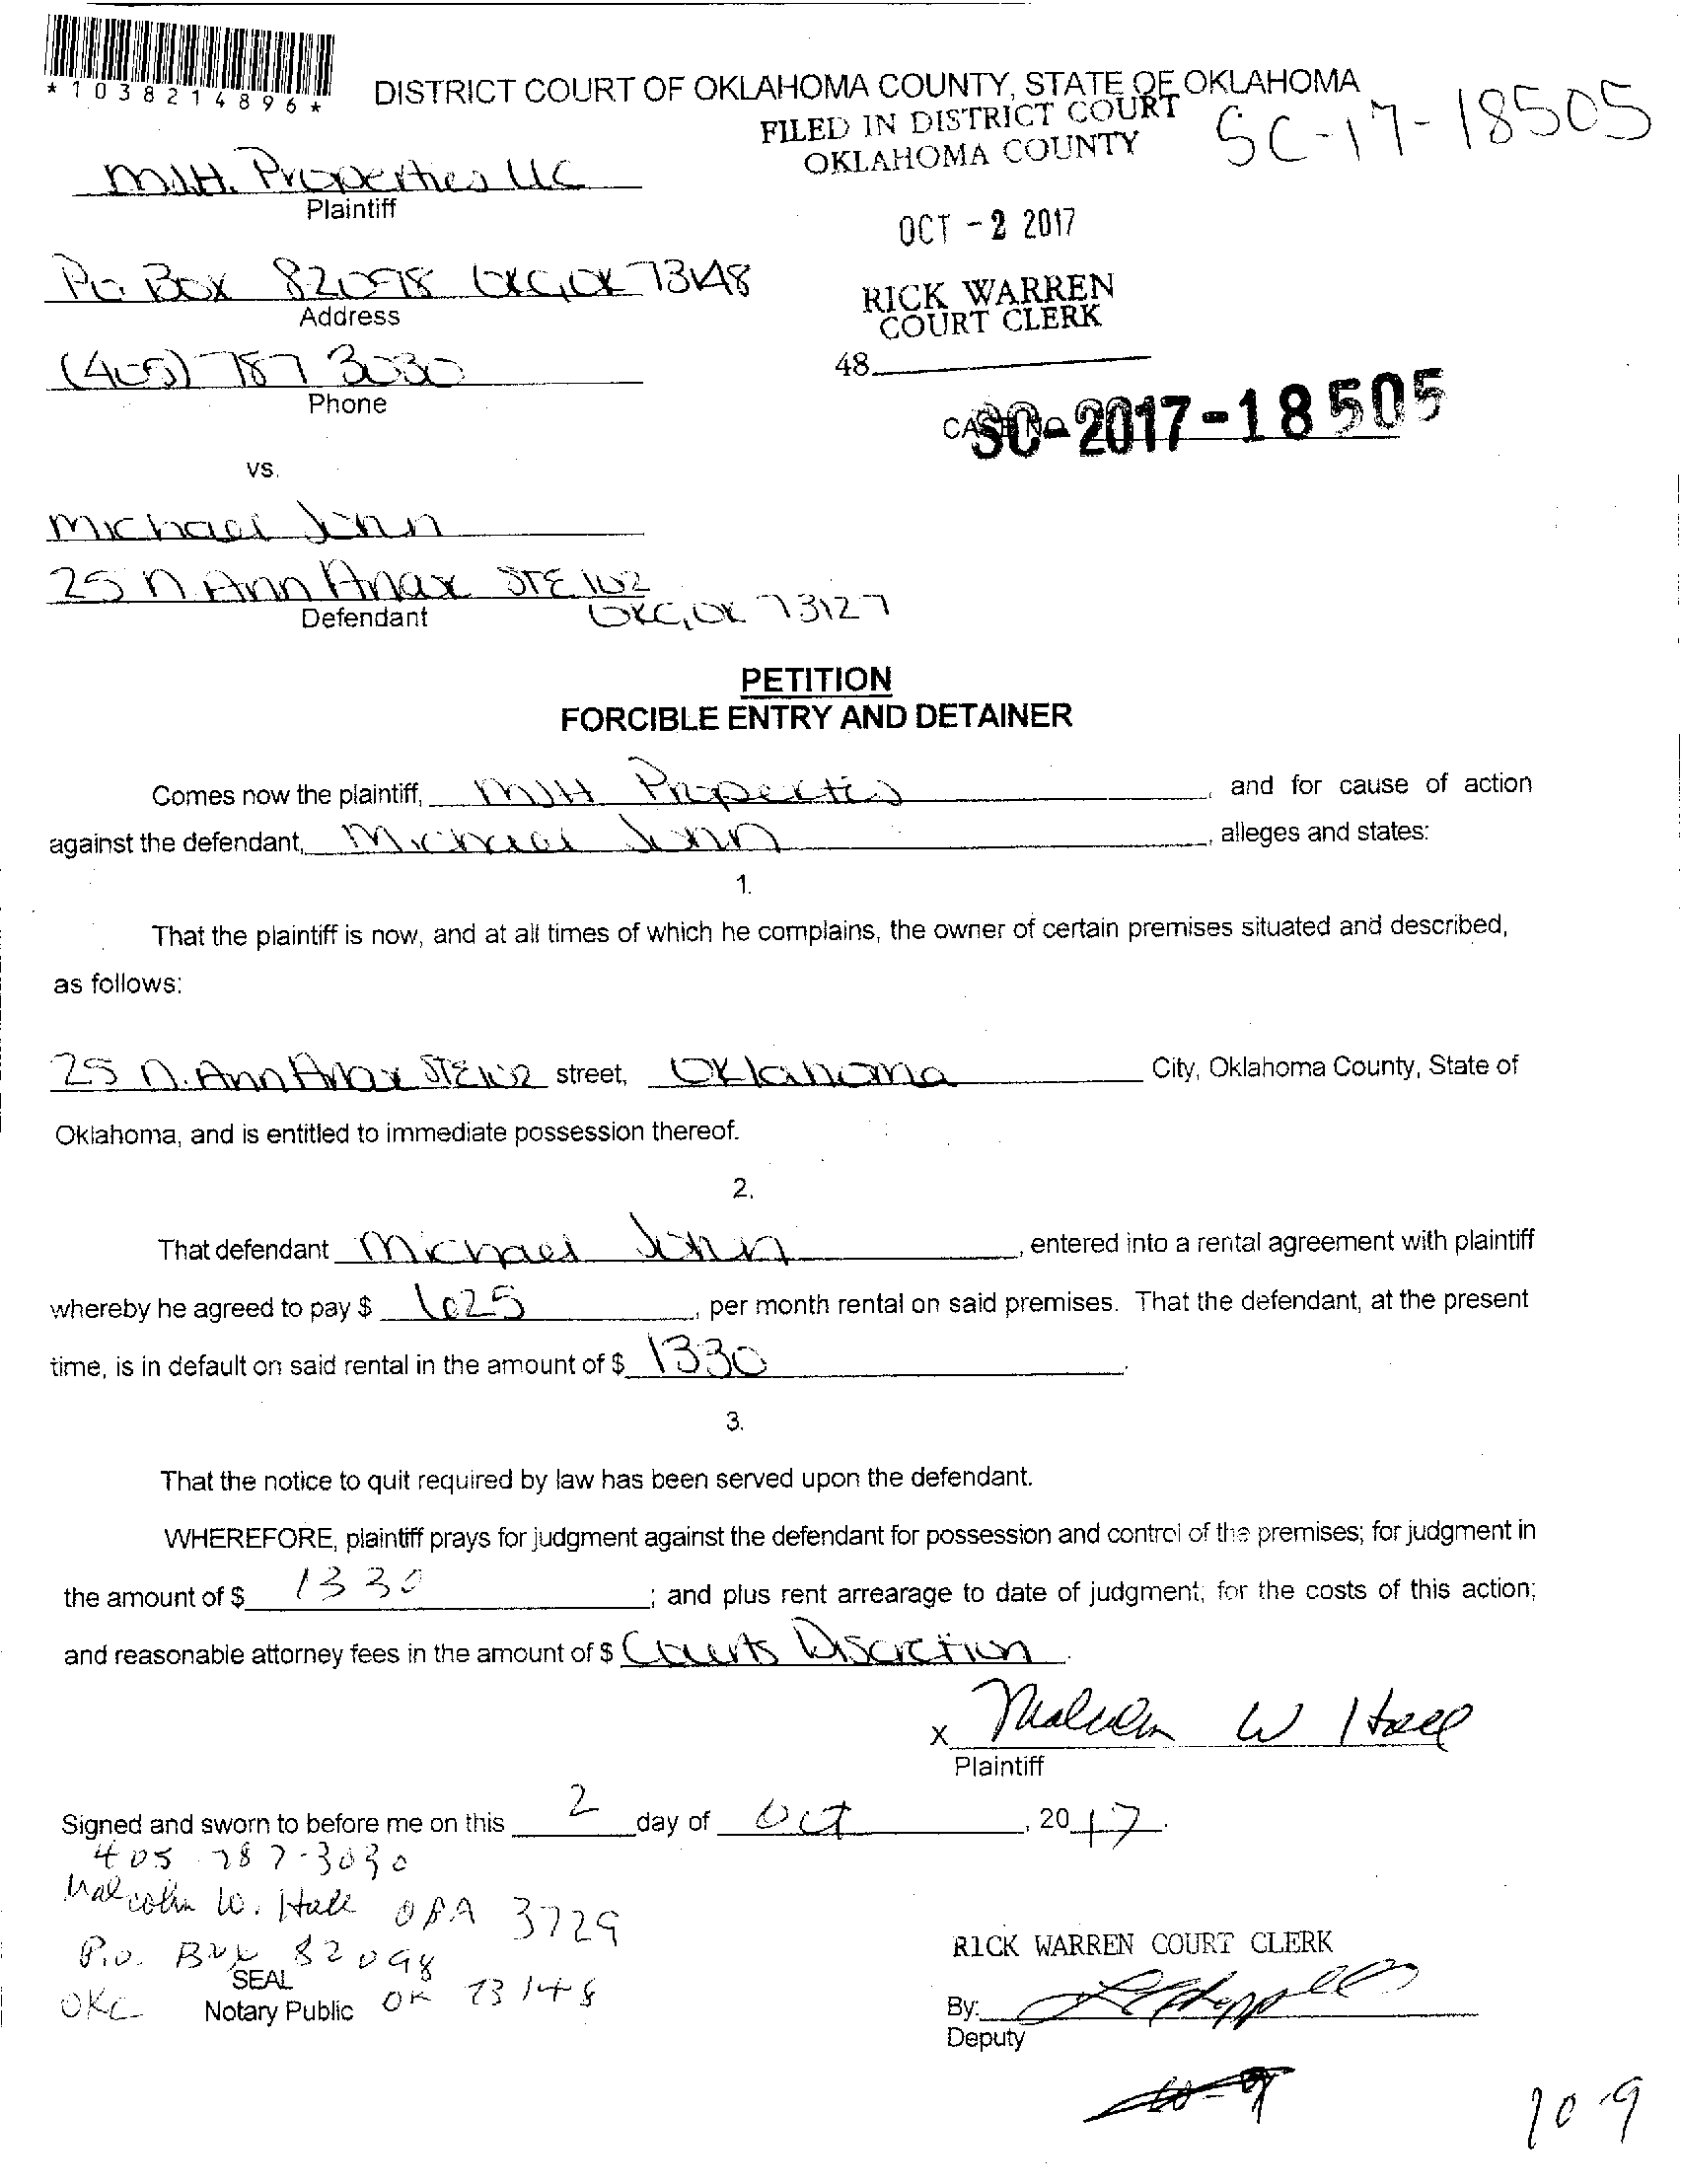 *1038214896*
DISTRICT COURT OF OKLAHOMA COUNTY, STATE OF OKLAHOMA
FILED IN DISTRICT COURT
OKLAHOMA COUNTY
SC-17-18505
M.J.H. Properties LLC
Plaintiff
OCT -2 2017
PO. BOX 82098 OKC, OK 73148
Address
RICK WARREN
COURT CLERK
48
(405) 787 3030
Phone
CASE NO.
SC-2017-18505
vs.
Michael John
25 N. Ann Arbor STE 102
Defendant
OKC, OK 73127
PETITION
FORCIBLE ENTRY AND DETAINER
Comes now the plaintiff, MJH Properties, and for cause of action
against the defendant, Michael John, alleges and states:
1.
That the plaintiff is now, and at all times of which he complains, the owner of certain premises situated and described,
as follows:
25 N. Ann Arbor STE 102 street, Oklahoma City, Oklahoma County, State of
Oklahoma, and is entitled to immediate possession thereof.
2.
That defendant Michael John, entered into a rental agreement with plaintiff
whereby he agreed to pay $ 625, per month rental on said premises. That the defendant, at the present
time, is in default on said rental in the amount of $ 1330.
3.
That the notice to quit required by law has been served upon the defendant.
WHEREFORE, plaintiff prays for judgment against the defendant for possession and control of the premises; for judgment in
the amount of $ 1330; and plus rent arrearage to date of judgment; for the costs of this action;
and reasonable attorney fees in the amount of $ Courts Discretion.
x Malcolm W Hall
Plaintiff
Signed and sworn to before me on this 2 day of Oct, 2017.
405 787-3030
Malcolm W. Hall OBA 3729
P.O. Box 82098
SEAL
OKC OK 73148
Notary Public
RICK WARREN COURT CLERK
By:
Deputy
10-9